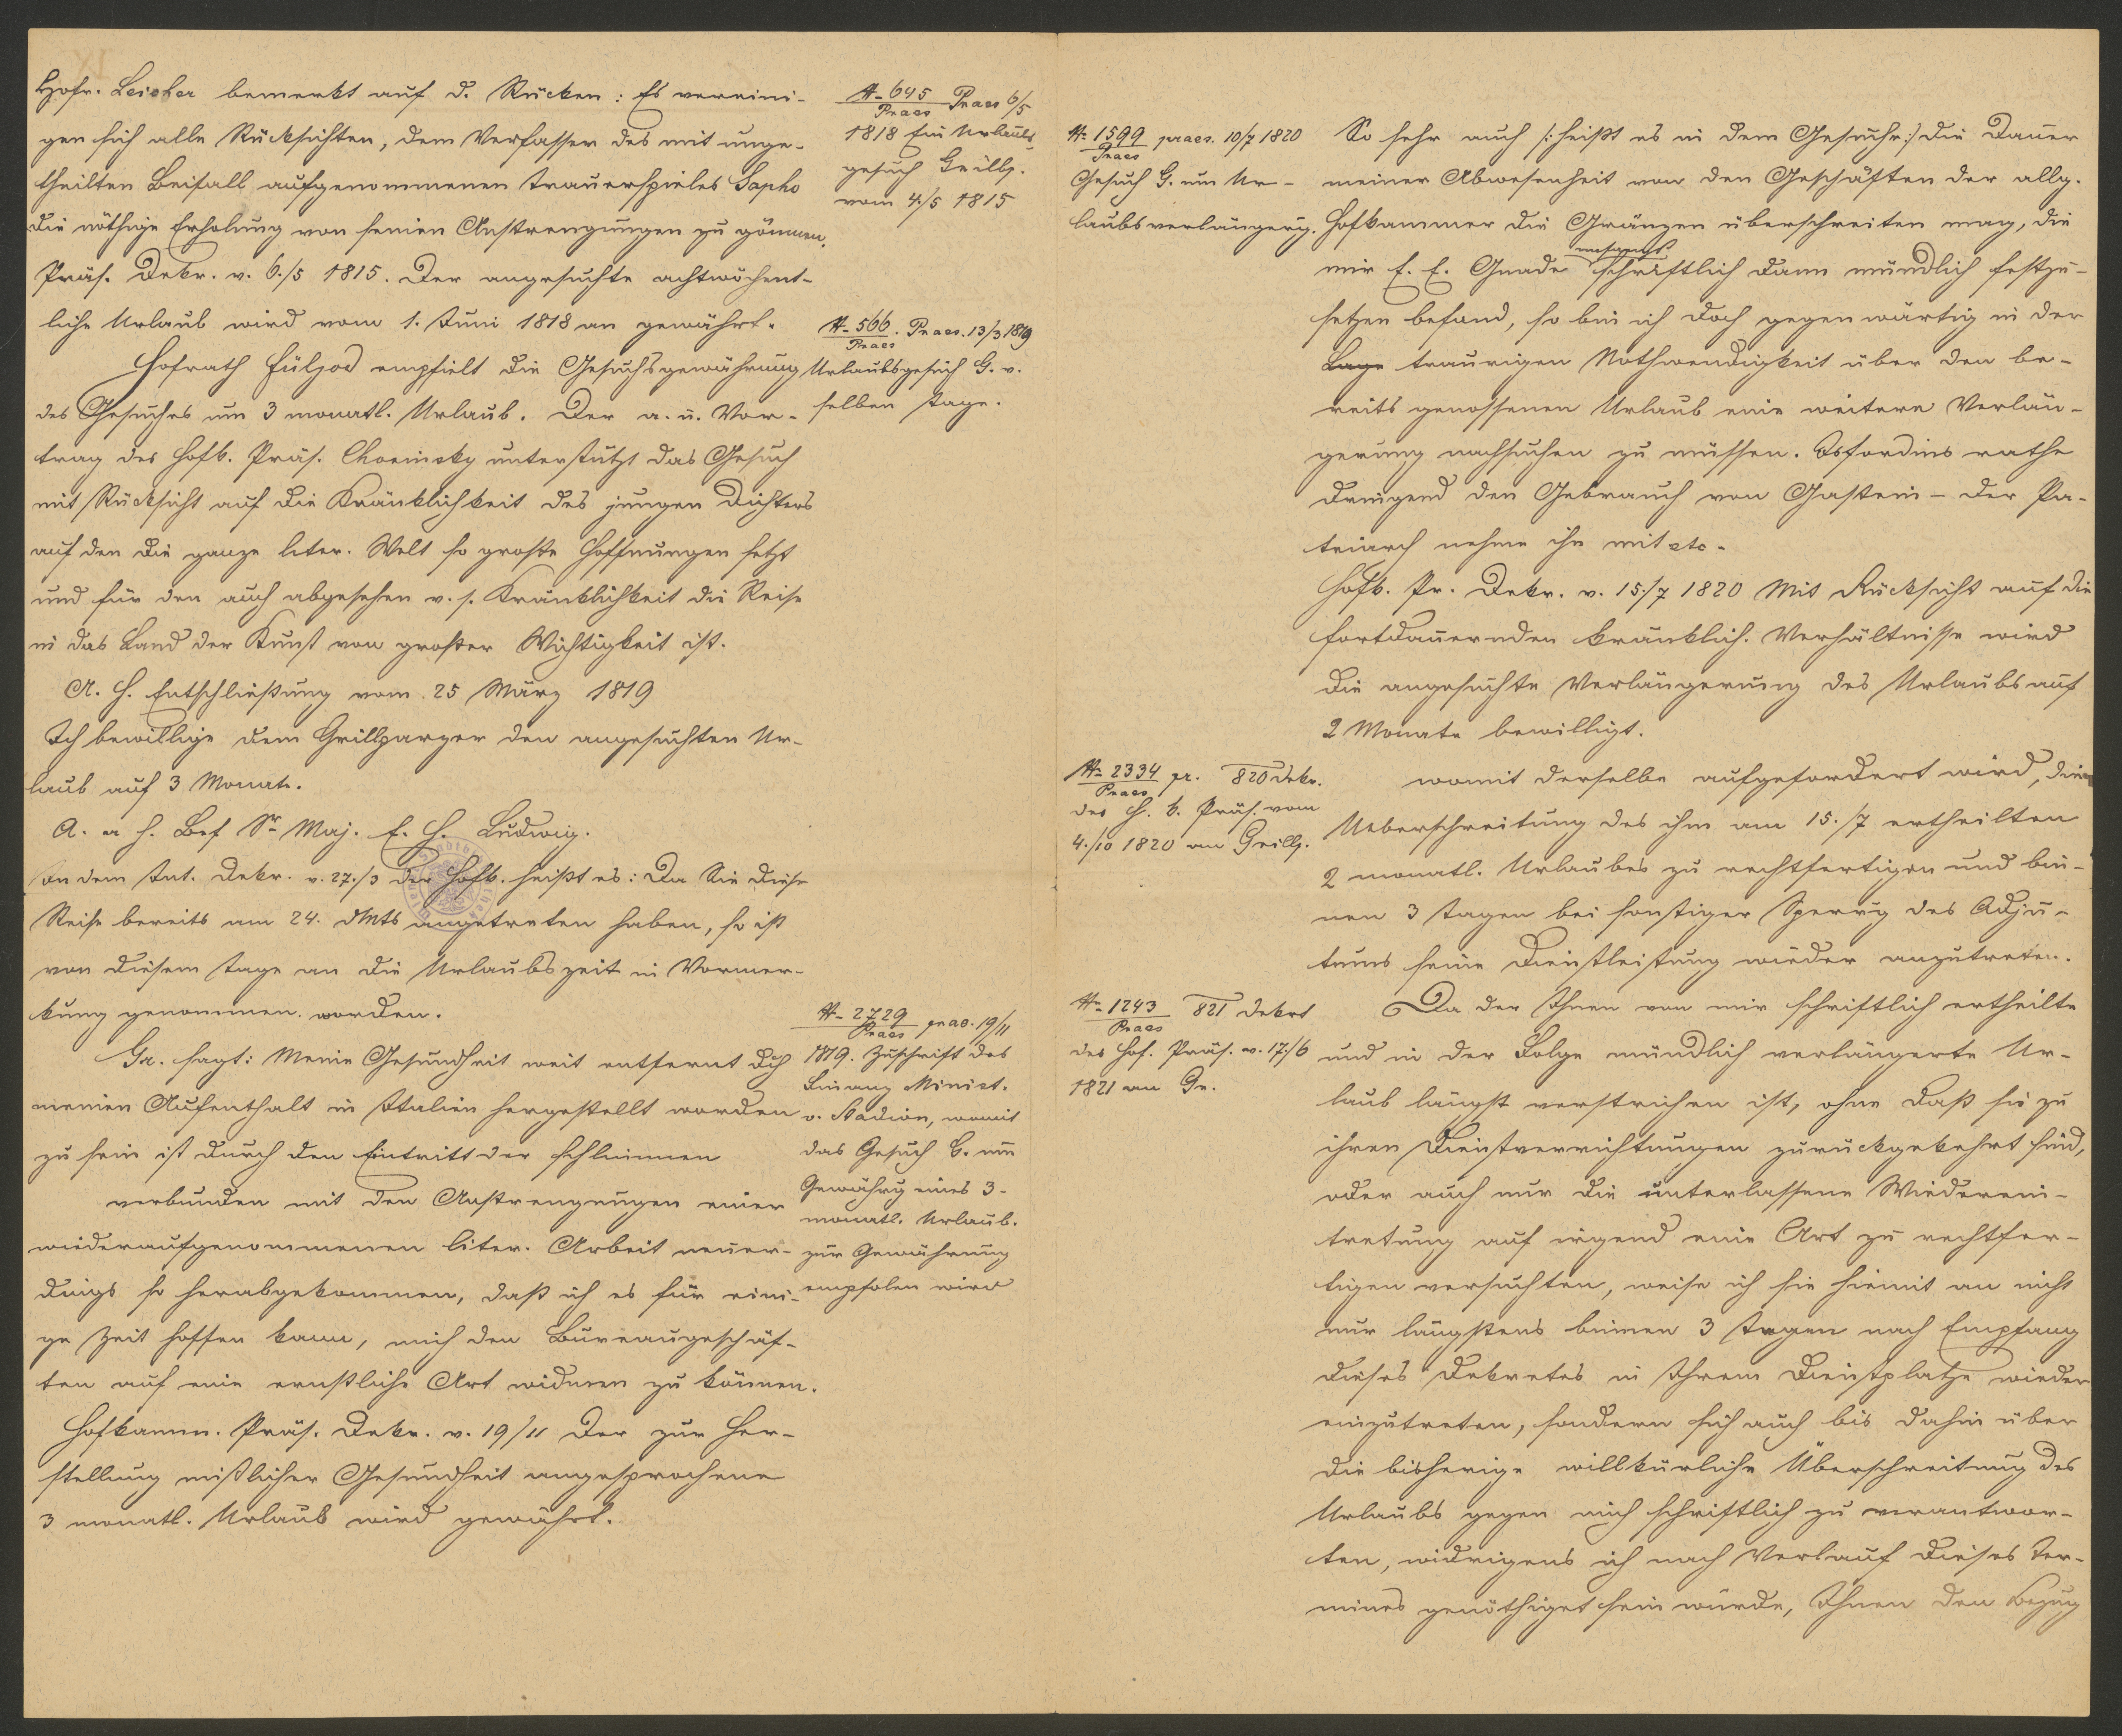 Hofr. Leicher bemerkt auf d. Rücken: Es vereini-
gen sich alle Rücksichten, dem Verfasser des mit unge-
theilten Beifall aufgenommenen Trauerspieles Sapho
die nöthige Erholung von seinen Anstrengungen zu gönnen.
Präs. Dekr. v. 6./5 1815. Der angesuchte achtwöchent-
liche Urlaub wird vom 1. Juni 1818 an gewährt.
Hofrath Füljod empfielt die Gesuchsgewährung
des Gesuches um 3 monatl. Urlaub. Der a. u. Vor-
trag des Hofk. Präs. Chorinsky unterstützt das Gesuch
mit Rücksicht auf die Kränklichkeit des jungen Dichters
auf den die ganze liter. Welt so große Hoffnungen setzt
und für den auch abgesehen v. s. Kränklichkeit die Reise
in das Land der Kunst von großer Wichtigkeit ist.
A. H. Entschließung vom 25 März 1819
Ich bewillige dem Grillparzer den angesuchten Ur-
laub auf 3 Monate.
A. a h. Bef Sr Maj. E. H. Ludwig.
An dem Int. Dekr. v. 27./3 der Hofk. heißt es: Da Sie diese
Reise bereits am 24. dMts angetreten haben, so ist
von diesem Tage an die Urlaubszeit in Vormer-
kung genommen worden.
Gr. sagt: Meine Gesundheit weit entfernt dch
meinen Aufenthalt in Italien hergestellt worden
zu sein ist durch den Eintritt der schlimmen
verbunden mit den Anstrengungen einer
wiederaufgenommenen liter. Arbeit neuer-
dings so herabgekommen, daß ich es für eini-
ge Zeit hoffen kann, mich den Bureaugeschäf-
ten auf eine ernstliche Art widmen zu können.
Hofkamm. Präs. Dekr. v. 19/11 Der zur Her-
stellung mißlicher Gesundheit angesprochene
3 monatl. Urlaub wird gewährt.
N- 645 Praes 6/5
Praes
1818 Ein Urlaubs
gesuch Grillp.
vom 4/5 1815
N- 566. Praes. 13/3 1819
Praes
Urlaubsgesuch G. v.
selben Tage.
N- 2729 prae. 19/11
Praes
1819. Zuschrift des
Finanz Minist.
v. Stadion, womit
das Gesuch G. um
Gewährg eines 3-
monatl. Urlaub.
zur Gewährung
empfolen wird
N- 1599 praes. 10/7 1820
Praes
Gesuch G. um Ur-
laubsverlängerg.
So sehr auch /: heißt es in dem Gesuche :/ die Dauer
meiner Abwesenheit von den Geschäften der allg.
Hofkammer die Gränzen überschreiten mag, die
mir E. E. Gnade schriftlich dann mündlich festzu-
setzen befand, so bin ich doch gegenwärtig in der
Lage traurigen Nothwendigkeit über den be-
reits genossenen Urlaub eine weitere Verlän-
gerung nachsuchen zu müssen. Isfordins rathe
dringend den Gebrauch von Gastein – der Pa-
triarch nehme ihn mit etc-
Hofk. Pr. Dekr. v. 15./7 1820 Mit Rücksicht auf die
fortdauernden kränklich. Verhältnisse wird
die angesuchte Verlängerung des Urlaubs auf
2 Monate bewilligt.
N- 2334 pr. 820 Dekr.
Praes
des H. k. Präs. vom
4./10 1820 an Grillp.
womit derselbe aufgefordert wird, die
Ueberschreitung des ihm am 15./7 ertheilten
2 monatl. Urlaubes zu rechtfertigen und bin-
nen 3 Tagen bei sonstiger Sperrg des Adju-
tums seine Dienstleistung wieder anzutreten.
N- 1243 821 Dekret
Praes
des Hof. Präs. v. 17./6
1821 an Gr.
Da der Ihnen von mir schriftlich ertheilte
und in der Folge mündlich verlängerte Ur-
laub längst verstrichen ist, ohne daß sie zu
ihren Dienstverrichtungen zurückgekehrt sind,
oder auch nur die unterlassene Wiederein-
tretung auf irgend eine Art zu rechtfer-
tigen versuchten, weise ich sie hiemit an nicht
nur längstens binnen 3 Tagen nach Empfang
dieses Dekretes in Ihrem Dienstplatze wieder
einzutreten, sondern sich auch bis dahin über
die bisherige willkürliche Überschreitung des
Urlaubs gegen mich schriftlich zu verantwor-
ten, widrigens ich nach Verlauf dieses Ter-
mines genöthiget sein würde, Ihnen den Bezug